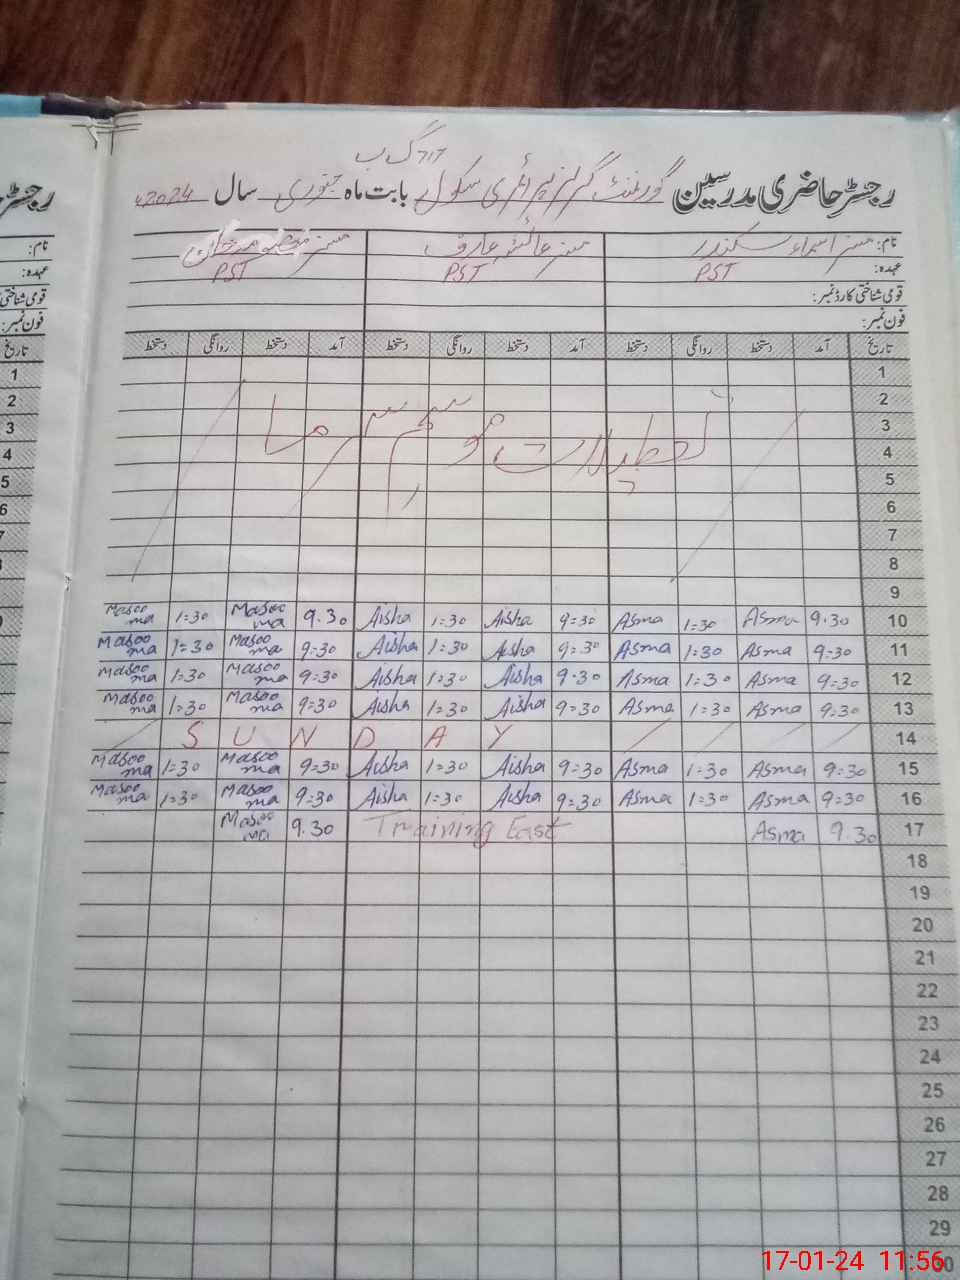 717 گ ب
رجسٹر حاضری مدرسین گورنمنٹ گرلز پرائمری سکول بابت ماہ جنوری سال 2024ء
نام: مسز اسماء سکندر مسز عائشہ عارف مسز
عہدہ: PST PST PST
قومی شناختی کارڈ نمبر:
فون نمبر:
تاریخ آمد دستخط روانگی دستخط آمد دستخط روانگی دستخط آمد دستخط روانگی دستخط
1
2
3
تعطیلات موسم سرما
4
5
6
7
8
9
10 9.30 Asma 1:30 Asma 9=30 Aisha 1:30 Aisha 9.30 Masooma 1:30 Masooma
11 9=30 Asma 1:30 Asma 9=30 Aisha 1:30 Aisha 9=30 Masooma 1=30 Masooma
12 9=30 Asma 1:30 Asma 9=30 Aisha 1=30 Aisha 9=30 Masooma 1=30 Masooma
13 9=30 Asma 1=30 Asma 9=30 Aisha 1=30 Aisha 9=30 Masooma 1=30 Masooma
14 SUNDAY
15 9=30 Asma 1=30 Asma 9=30 Aisha 1=30 Aisha 9=30 Masooma 1=30 Masooma
16 9=30 Asma 1=30 Asma 9=30 Aisha 1=30 Aisha 9=30 Masooma 1=30 Masooma
17 9.30 Asma Training East 9.30 Masooma
18
19
20
21
22
23
24
25
26
27
28
29
30
نام:
عہدہ:
قومی شناختی
فون نمبر:
تاریخ
1
2
3
4
5
6
7
17-01-24 11:56